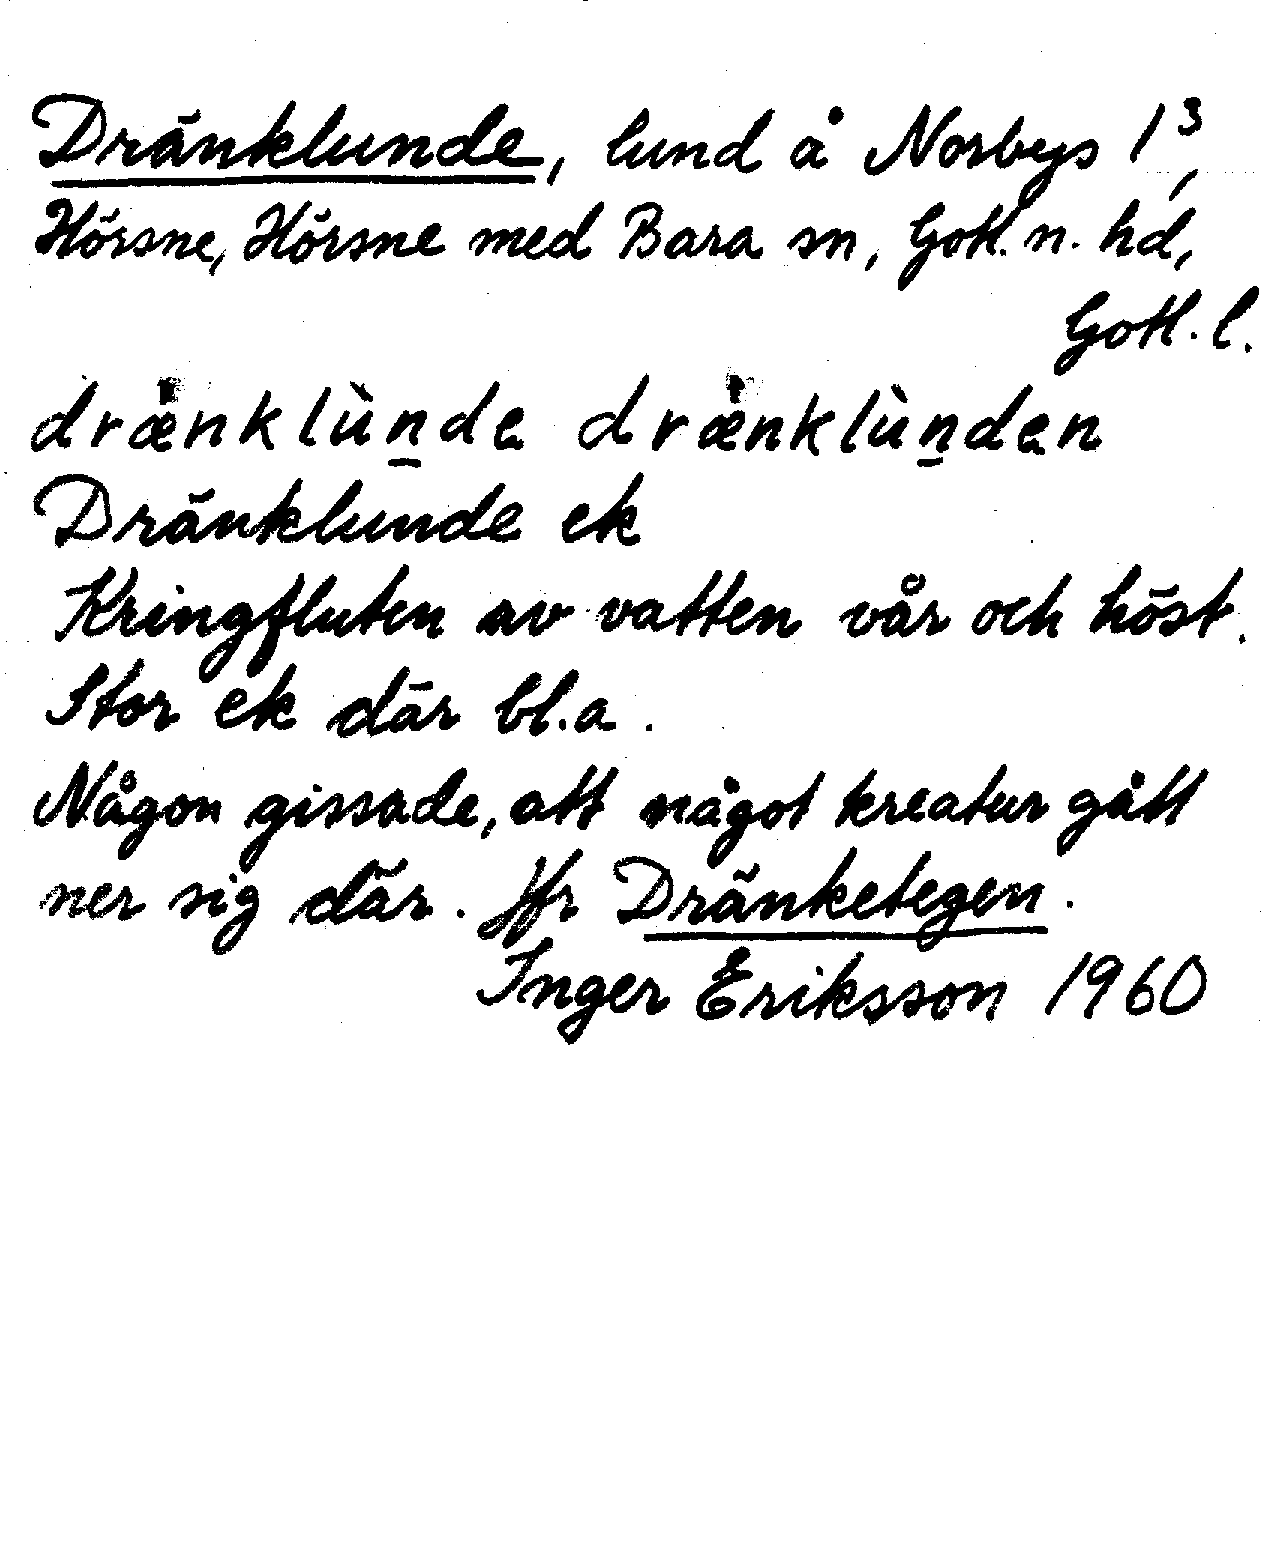 Dränklunde, lund å Norbys 1³,
Hörsne, Hörsne med Bara sn, Gotl. n. hd,
Gotl. l.
drænklùn̠de drænklùn̠den
Dränklunde ek
Kringfluten av vatten vår och höst.
Stor ek där bl.a.
Någon gissade, att något kreatur gått
ner sig där. Jfr Dränketegen.
Inger Eriksson 1960